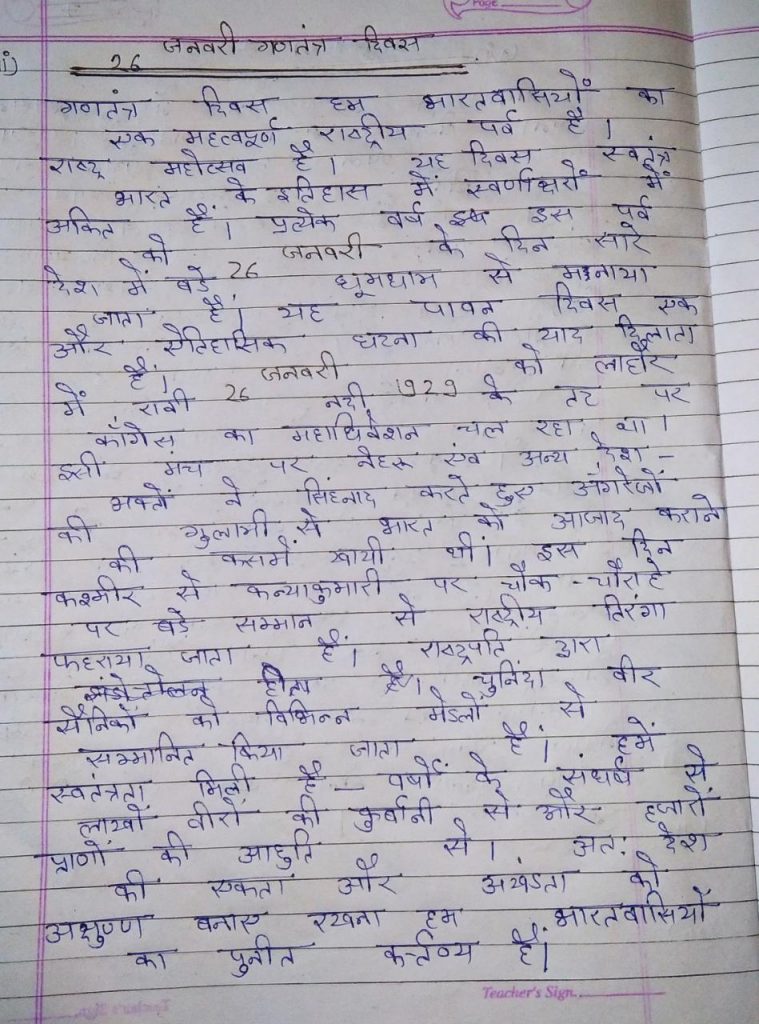 Page
ii)
26 जनवरी गणतंत्र दिवस
गणतंत्र दिवस हम भारतवासियों का
एक महत्वपूर्ण राष्ट्रीय पर्व है।
राष्ट्र महोत्सव है। यह दिवस स्वतंत्र
भारत के इतिहास में स्वर्णाक्षरों में
अंकित है। प्रत्येक वर्ष इस पर्व
को जनवरी के दिन सारे
देश में बड़े 26 धूमधाम से मनाया
जाता है। यह पावन दिवस एक
और ऐतिहासिक घटना की याद दिलाता
है। जनवरी को लाहौर
में रावी 26 नदी 1929 के तट पर
काँग्रेस का महाधिवेशन चल रहा था।
इसी मंच पर नेहरू एंव अन्य देश -
भक्तों ने सिंहनाद करते हुए अंगरेजों
की गुलामी से भारत को आजाद कराने
की कसमें खायी थीं। इस दिन
कश्मीर से कन्याकुमारी पर चौक - चौराहे
पर बड़े सम्मान से राष्ट्रीय तिरंगा
फहराया जाता है। राष्ट्रपति द्वारा
झंडोतोलन होता है। चुनिंदा वीर
सैनिकों को विभिन्न मेडलों से
सम्मानित किया जाता है। हमें
स्वतंत्रता मिली है - वर्षों के संघर्ष से
लाखों वीरों की कुर्बानी से और हजारों
प्राणों की आहुति से। अत: देश
की एकता और अखंडता को
अक्षुण्ण बनाए रखना हम भारतवासियों
का पुनीत कर्त्तव्य है।
Teacher's Sign